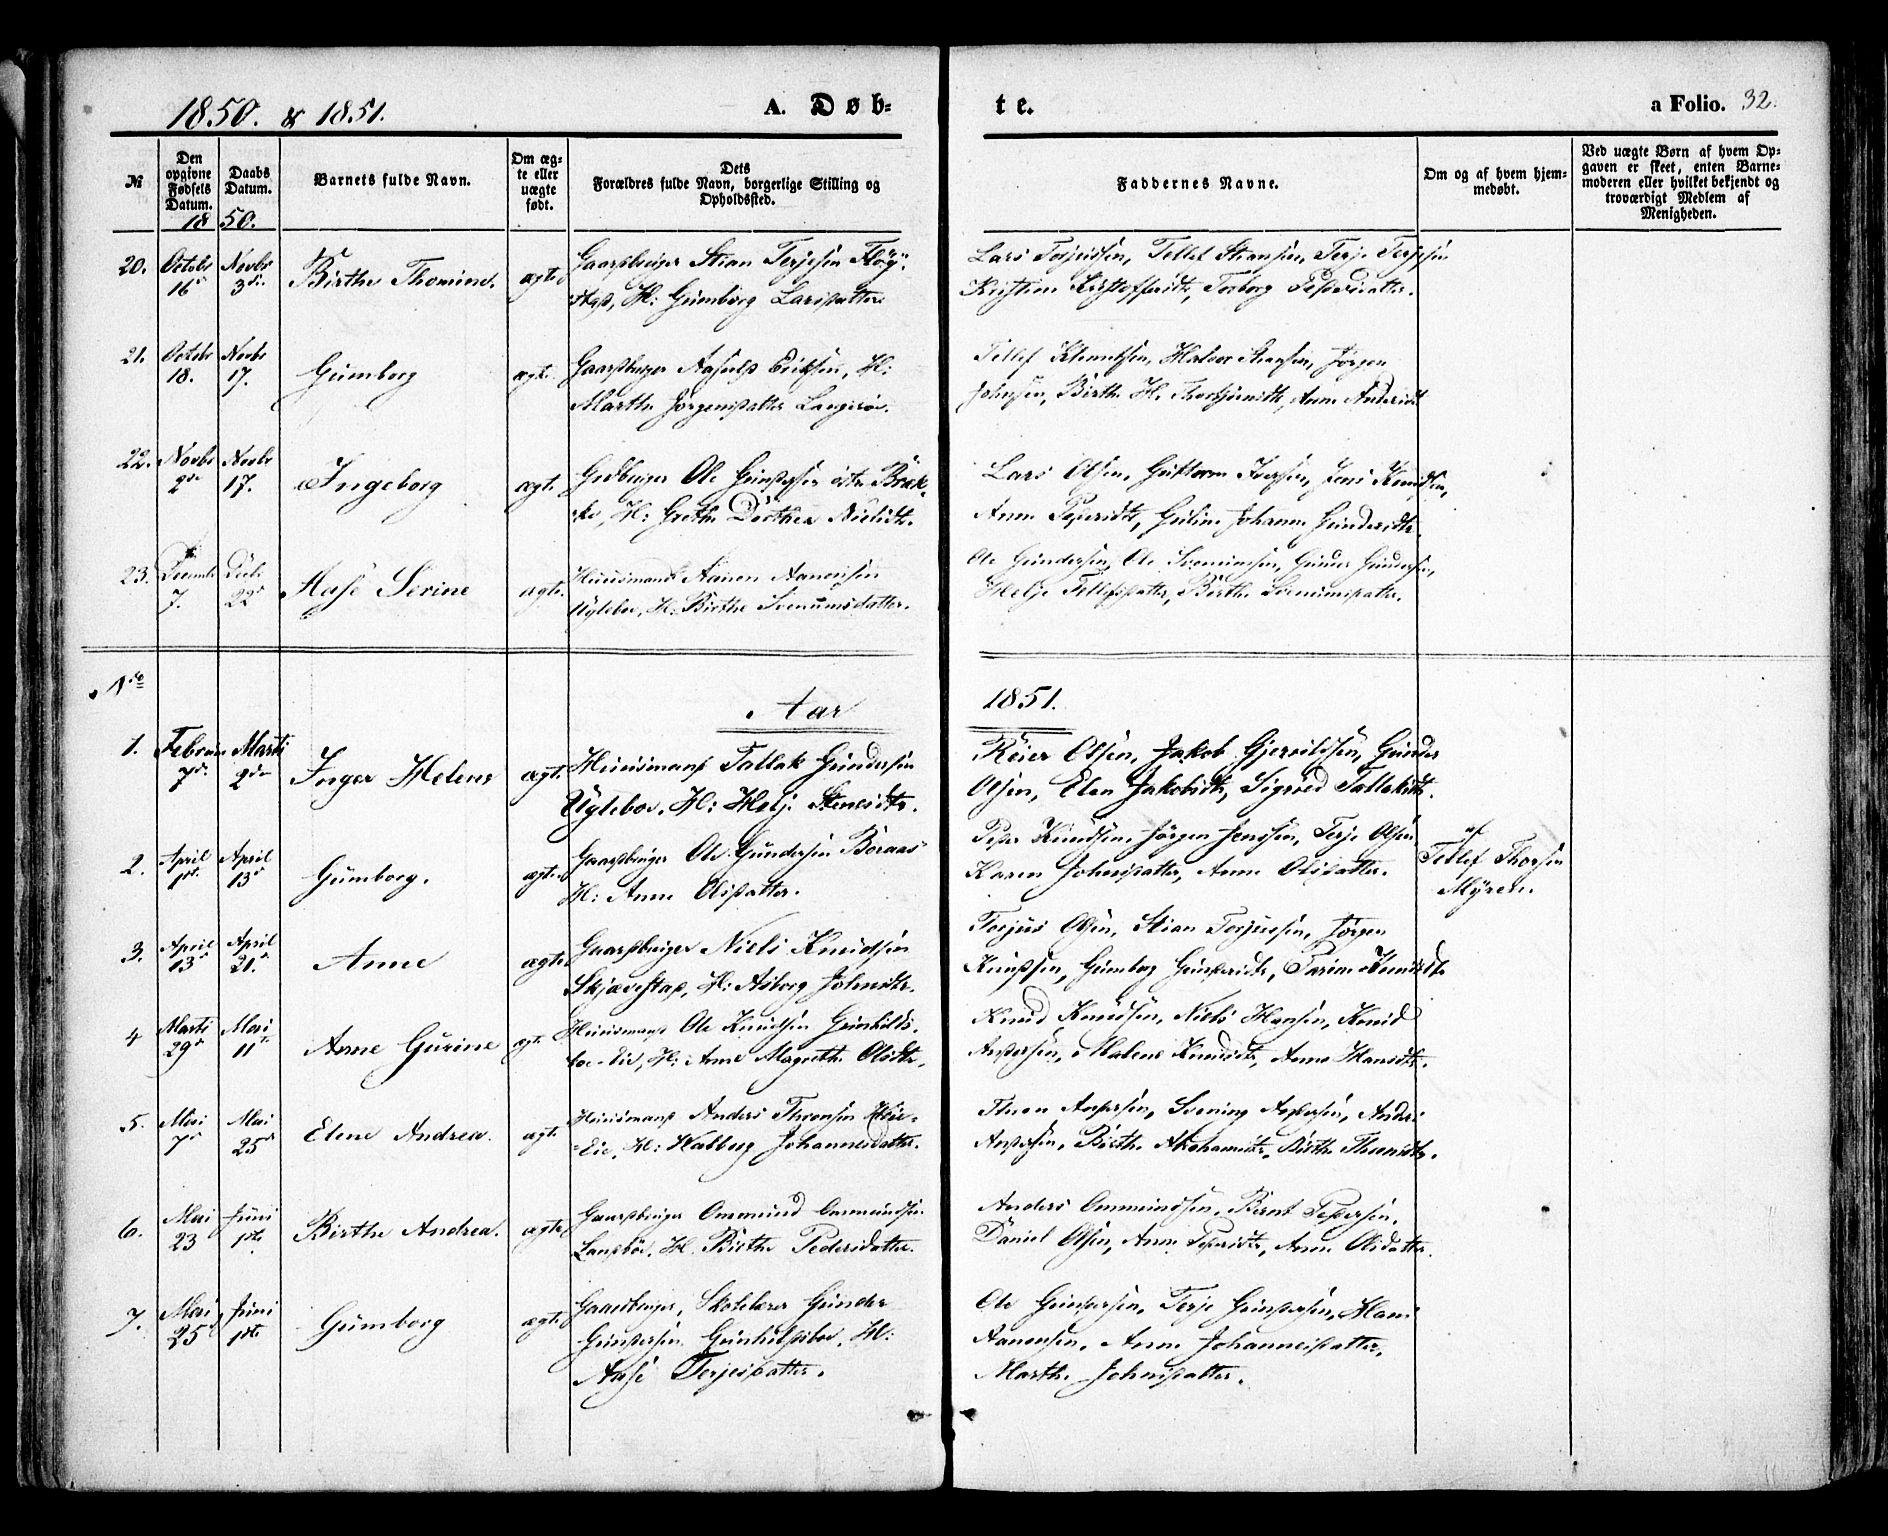 1850. & 1851.
A. Døb-
te.
a Folio. 32.
№
Den opgivne Fødsels Datum.
Daabs Datum.
Barnets fulde Navn.
Om ægte eller uægte født.
Dets Forældres fulde Navn, borgerlige Stilling og Opholdssted.
Faddernes Navne.
Om og af hvem hjemmedøbt.
Ved uægte Børn af hvem Opgaven er skeet, enten Barnemoderen eller hvilket bekjendt og troværdigt Medlem af Menigheden.
18 50.
20. Octobr Novbr
16 3
Birthe Thomine. ægte
Gaardbruger Stian Terjesen
H: Gumborg Larsdatter
Lars Tellef Stiansen, Terje Terjesen
Torborg Pedersdatter.
21. Octobr Novbr
18. 17.
Gumborg ægt.
Gaardbruger Eriksen, H:
Marthe Jørgensdatter
Tellef Halvor Stiansen, Jørgen
Johnsen, Birthe H. Anne
22. Novbr Novbr
2 17.
Ingeborg ægt.
Ole Gundersen
H: Grethe Dorthea Nielsdt.
Lars Olsen, Guttorm Jens Knudsen,
Anne Johanne Gundersdt.
23. Decembr Decbr
7. 22
Aase Serine ægte.
Huusmand Aanen Aanensen
Ugleboe, H: Birthe Svenumsdatter.
Ole Gundersen, Ole Gunder Gundersen,
Helje Tellefsdatter, Birthe
No
Aar
1851.
1. Februar Marti
7 2
Inger Helene ægte
Huusmand Tallak Gundersen
Ugleboe, H: Helje
Reier Olsen, Jakob Gunder
Olsen, Elen Jakobsdt, Tallaksdt.
2. April April
1st 13
Gumborg. ægte
Gaardbruger Ole Gundersen Boraas
H: Anne Olsdatter.
Peder Knudsen, Jørgen Jenssen, Terje Olsen
Karen Johnsdatter, Anne Olsdatter.
af
Tellef Thorsen
Myren.
3. April April
13 21.
Anne ægte
Gaardbruger Niels Knudsen
H: Asborg Johnsdt.
Torjus Olsen, Stian Torjussen, Jørgen
Knudsen, Gumborg Gundersdt,
4 Marti Mai
29 11
Anne Gurine ægt.
Huusmand Ole Knudsen Gunhilds-
boe-Eie, H: Anne Magrethe Olsdt.
Knud Knudsen, Niels Hansen, Knud
Andersen, Malene Knudsdt, Anne Hansdt.
5. Mai Mai
7 25
Elene Andrea. ægte
Huusmand Anders
-Eie, H: Johannesdatter.
Andersen, Svening Andersen, Anders
Andersen, Birthe Birthe
6. Mai Juni
23 1ste
Birthe Andrea. ægte
Gaardbruger Ommund Ommundsen
H: Birthe Pedersdatter.
Anders Ommundsen, Bernt Pedersen,
Daniel Olsen, Anne Pedersdt, Anne Olsdatter.
7. Mai Juni
25 1ste
Gumborg ægte
Gaardbruger, Skolelærer Gunder
Gundersen Gunhildsboe, H:
Aase Terjesdatter.
Ole Gundersen, Terje Gundersen, Hans
Aanensen, Anne Johannesdatter,
Marthe Johnsdatter.